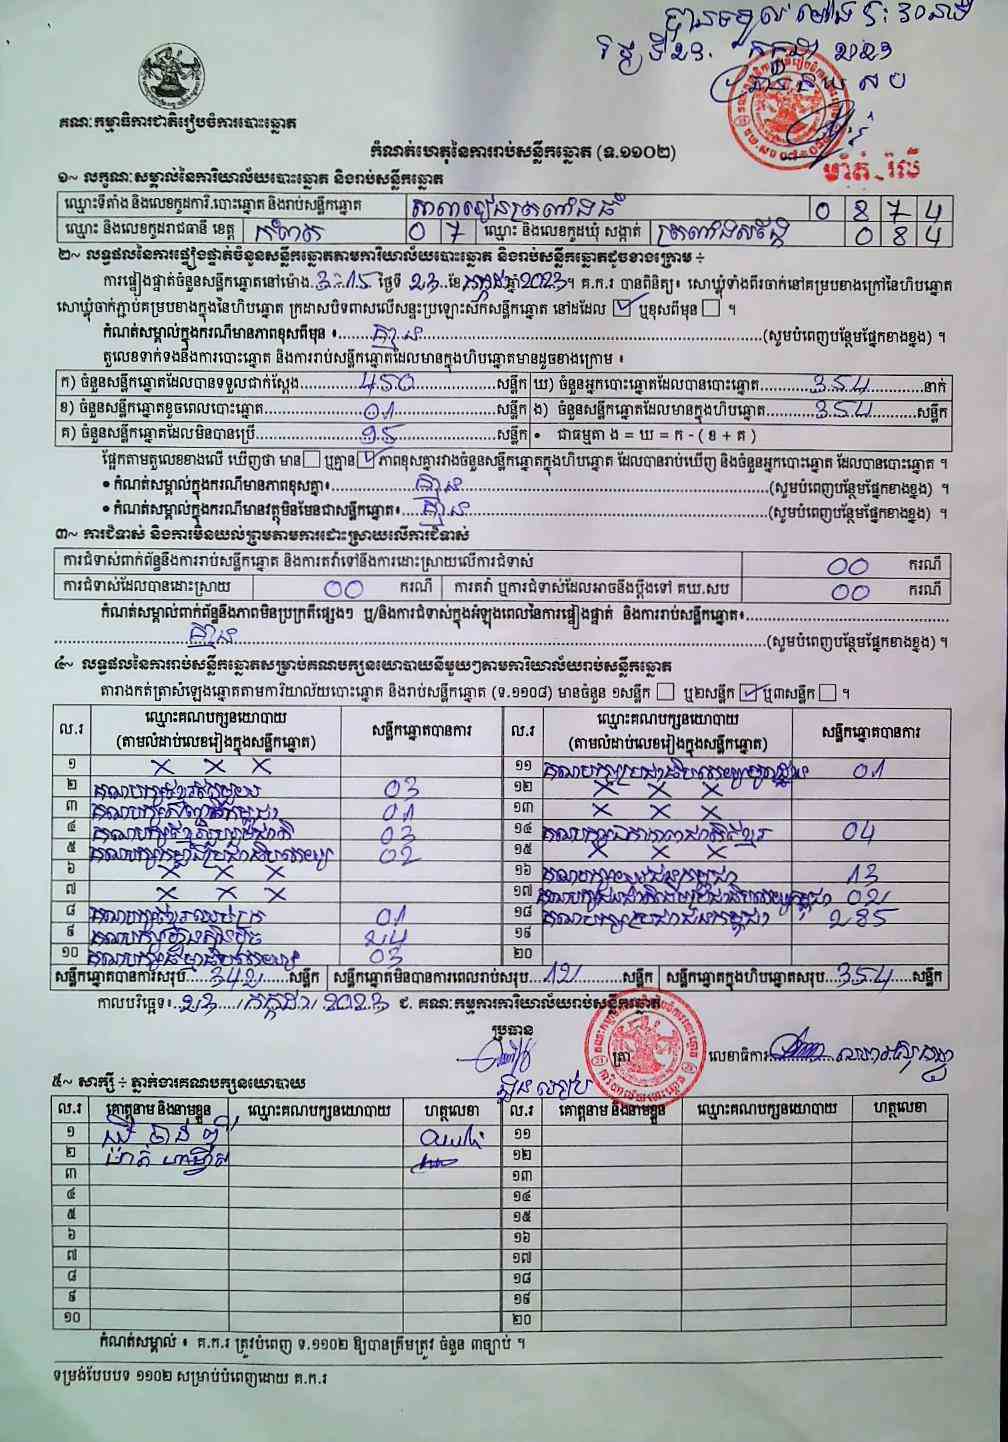 បានទទួល ម៉ោង 5:30 នាទី
ថ្ងៃទី23. កក្កដា 2023
គណៈកម្មាធិការជាតិរៀបចំការបោះឆ្នោត
កំណត់ហេតុនៃការរាប់សន្លឹកឆ្នោត (ទ.១១០២)
១~ លក្ខណៈសម្គាល់នៃការិយាល័យបោះឆ្នោត និងរាប់សន្លឹកឆ្នោត
ឈ្មោះទីតាំង និងលេខកូដការិ.បោះឆ្នោត និងរាប់សន្លឹកឆ្នោត 0 8 7 4
ឈ្មោះ និងលេខកូដរាជធានី ខេត្ត កំពត 0 7 ឈ្មោះ និងលេខកូដឃុំ សង្កាត់ 0 8 4
២~ លទ្ធផលនៃការផ្ទៀងផ្ទាត់ចំនួនសន្លឹកឆ្នោតតាមការិយាល័យបោះឆ្នោត និងរាប់សន្លឹកឆ្នោតដូចខាងក្រោម ÷
ការផ្ទៀងផ្ទាត់ចំនួនសន្លឹកឆ្នោតនៅម៉ោង 3:15 ថ្ងៃទី 23 ខែ កក្កដា ឆ្នាំ 2023 ។ គ.ក.រ បានពិនិត្យ៖ សោឃ្មុំទាំងពីរចាក់នៅគម្របខាងក្រៅនៃហិបឆ្នោត
សោឃ្មុំចាក់ភ្ជាប់គម្របខាងក្នុងនៃហិបឆ្នោត ក្រដាសបិទពាសលើសន្ទះប្រឡោះសៀកសន្លឹកឆ្នោត នៅដដែល ☑ ឬខុសពីមុន ☐ ។
កំណត់សម្គាល់ក្នុងករណីមានភាពខុសពីមុន ៖ គ្មាន (សូមបំពេញបន្ថែមផ្នែកខាងខ្នង) ។
តួលេខទាក់ទងនឹងការបោះឆ្នោត និងការរាប់សន្លឹកឆ្នោតដែលមានក្នុងហិបឆ្នោតមានដូចខាងក្រោម ៖
ក) ចំនួនសន្លឹកឆ្នោតដែលបានទទួលជាក់ស្តែង 450 សន្លឹក ឃ) ចំនួនអ្នកបោះឆ្នោតដែលបានបោះឆ្នោត 354 នាក់
ខ) ចំនួនសន្លឹកឆ្នោតខូចពេលបោះឆ្នោត 01 សន្លឹក ង) ចំនួនសន្លឹកឆ្នោតដែលមានក្នុងហិបឆ្នោត 354 សន្លឹក
គ) ចំនួនសន្លឹកឆ្នោតដែលមិនបានប្រើ 95 សន្លឹក • ជាធម្មតា ង = ឃ = ក - ( ខ + គ )
ផ្អែកតាមតួលេខខាងលើ ឃើញថា មាន ☐ ឬគ្មាន ☑ ភាពខុសគ្នារវាងចំនួនសន្លឹកឆ្នោតក្នុងហិបឆ្នោត ដែលបានរាប់ឃើញ និងចំនួនអ្នកបោះឆ្នោត ដែលបានបោះឆ្នោត ។
• កំណត់សម្គាល់ក្នុងករណីមានភាពខុសគ្នា៖ គ្មាន (សូមបំពេញបន្ថែមផ្នែកខាងខ្នង) ។
• កំណត់សម្គាល់ក្នុងករណីមានវត្ថុមិនមែនជាសន្លឹកឆ្នោត៖ គ្មាន (សូមបំពេញបន្ថែមផ្នែកខាងខ្នង) ។
៣~ ការជំទាស់ និងការមិនយល់ព្រមតាមការដោះស្រាយលើការជំទាស់
ការជំទាស់ពាក់ព័ន្ធនឹងការរាប់សន្លឹកឆ្នោត និងការតវ៉ាទៅនឹងការដោះស្រាយលើការជំទាស់ 00 ករណី
ការជំទាស់ដែលបានដោះស្រាយ 00 ករណី ការតវ៉ា ឬការជំទាស់ដែលអាចនឹងប្តឹងទៅ គឃ.សប 00 ករណី
កំណត់សម្គាល់ពាក់ព័ន្ធនឹងភាពមិនប្រក្រតីផ្សេងៗ ឬ/និងការជំទាស់ក្នុងអំឡុងពេលនៃការផ្ទៀងផ្ទាត់ និងការរាប់សន្លឹកឆ្នោត៖
គ្មាន (សូមបំពេញបន្ថែមផ្នែកខាងខ្នង) ។
៤~ លទ្ធផលនៃការរាប់សន្លឹកឆ្នោតសម្រាប់គណបក្សនយោបាយនីមួយៗតាមការិយាល័យរាប់សន្លឹកឆ្នោត
តារាងកត់ត្រាសំឡេងឆ្នោតតាមការិយាល័យបោះឆ្នោត និងរាប់សន្លឹកឆ្នោត (ទ.១១០៨) មានចំនួន ១សន្លឹក ☐ ឬ២សន្លឹក ☑ ឬ៣សន្លឹក ☐ ។
ល.រ ឈ្មោះគណបក្សនយោបាយ (តាមលំដាប់លេខរៀងក្នុងសន្លឹកឆ្នោត) សន្លឹកឆ្នោតបានការ ល.រ ឈ្មោះគណបក្សនយោបាយ (តាមលំដាប់លេខរៀងក្នុងសន្លឹកឆ្នោត) សន្លឹកឆ្នោតបានការ
១ X X X ១១ 01
២ 03 ១២ X X X
៣ 01 ១៣ X X X
៤ 03 ១៤ 04
៥ 02 ១៥ X X X
៦ X X X ១៦ 13
៧ X X X ១៧ 02
៨ 01 ១៨ គណបក្សប្រជាជនកម្ពុជា 285
៩ 24 ១៩
១០ 03 ២០
សន្លឹកឆ្នោតបានការសរុប 342 សន្លឹក សន្លឹកឆ្នោតមិនបានការពេលរាប់សរុប 12 សន្លឹក សន្លឹកឆ្នោតក្នុងហិបឆ្នោតសរុប 354 សន្លឹក
កាលបរិច្ឆេទ៖ 23 / កក្កដា / 2023 ជ. គណៈកម្មការការិយាល័យរាប់សន្លឹកឆ្នោត
ប្រធាន
ត្រា លេខាធិការ
៥~ សាក្សី ÷ ភ្នាក់ងារគណបក្សនយោបាយ
ល.រ គោត្តនាម និងនាមខ្លួន ឈ្មោះគណបក្សនយោបាយ ហត្ថលេខា ល.រ គោត្តនាម និងនាមខ្លួន ឈ្មោះគណបក្សនយោបាយ ហត្ថលេខា
១ ១១
២ ១២
៣ ១៣
៤ ១៤
៥ ១៥
៦ ១៦
៧ ១៧
៨ ១៨
៩ ១៩
១០ ២០
កំណត់សម្គាល់ ៖ គ.ក.រ ត្រូវបំពេញ ទ.១១០២ ឱ្យបានត្រឹមត្រូវ ចំនួន ៣ច្បាប់ ។
ទម្រង់បែបបទ ១១០២ សម្រាប់បំពេញដោយ គ.ក.រ